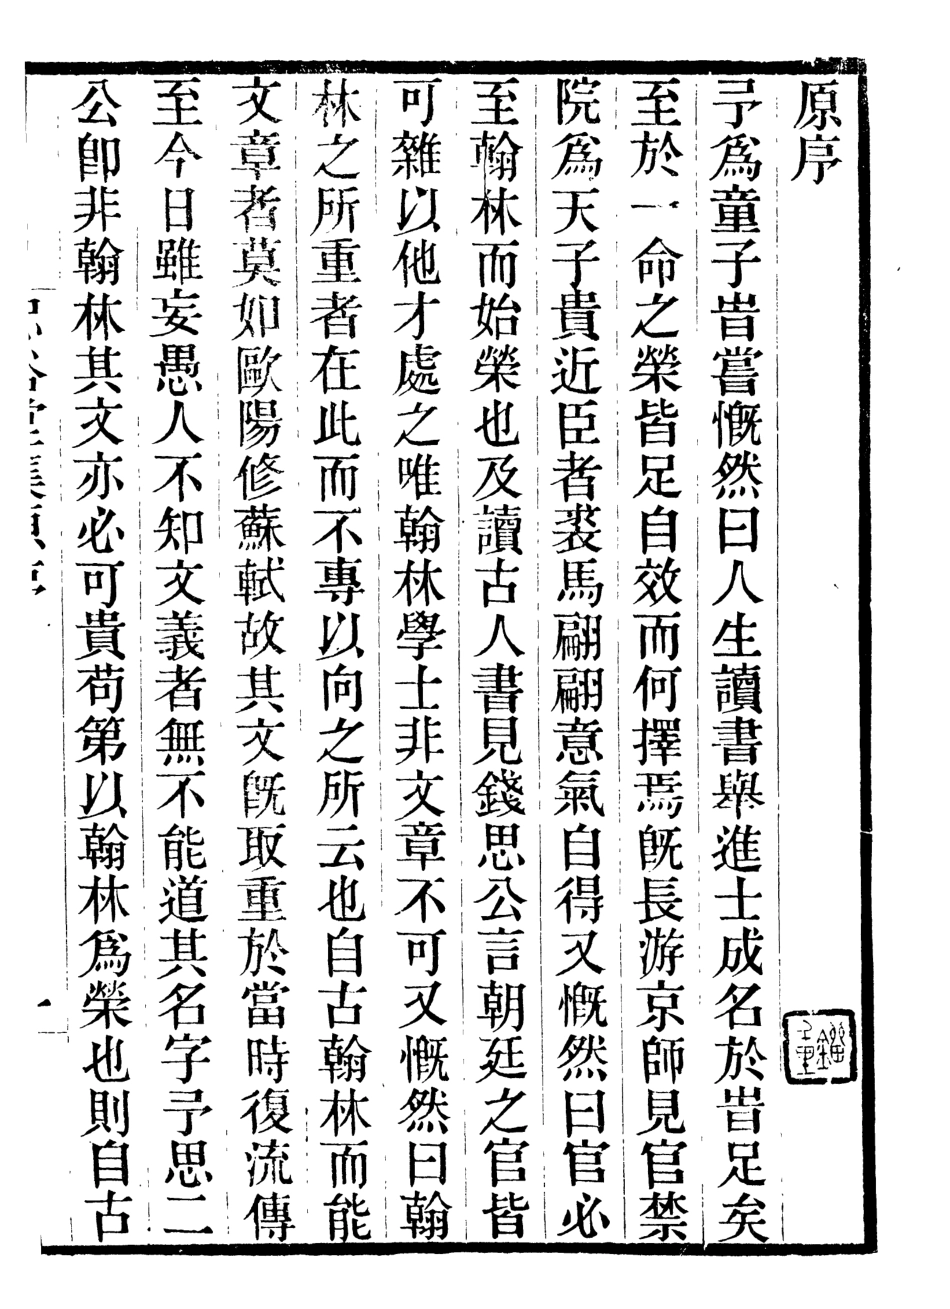 原序
予爲童子旹嘗慨然曰人生讀書舉進士成名於旹足矣
至於一命之榮皆足自效而何擇焉旣長游京師見官禁
院爲天子貴近臣者裘馬翩翩意氣自得又慨然曰官必
至翰林而始榮也及讀古人書見錢思公言朝廷之官皆
可雜以他才處之唯翰林學士非文章不可又慨然曰翰
林之所重者在此而不專以向之所云也自古翰林而能
文章者莫如歐陽修蘇軾故其文旣取重於當時復流傳
至今日雖妄愚人不知文義者無不能道其名字予思二
公卽非翰林其文亦必可貴苟第以翰林爲榮也則自古